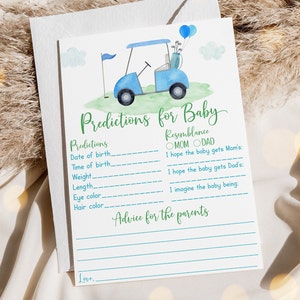 Predictions for Baby
Predictions
Date of birth
Time of birth
Weight
Length
Eye color
Hair color
Resemblance
MOM DAD
I hope the baby gets Mom's:
I hope the baby gets Dad's:
I imagine the baby being
Advice for the parents